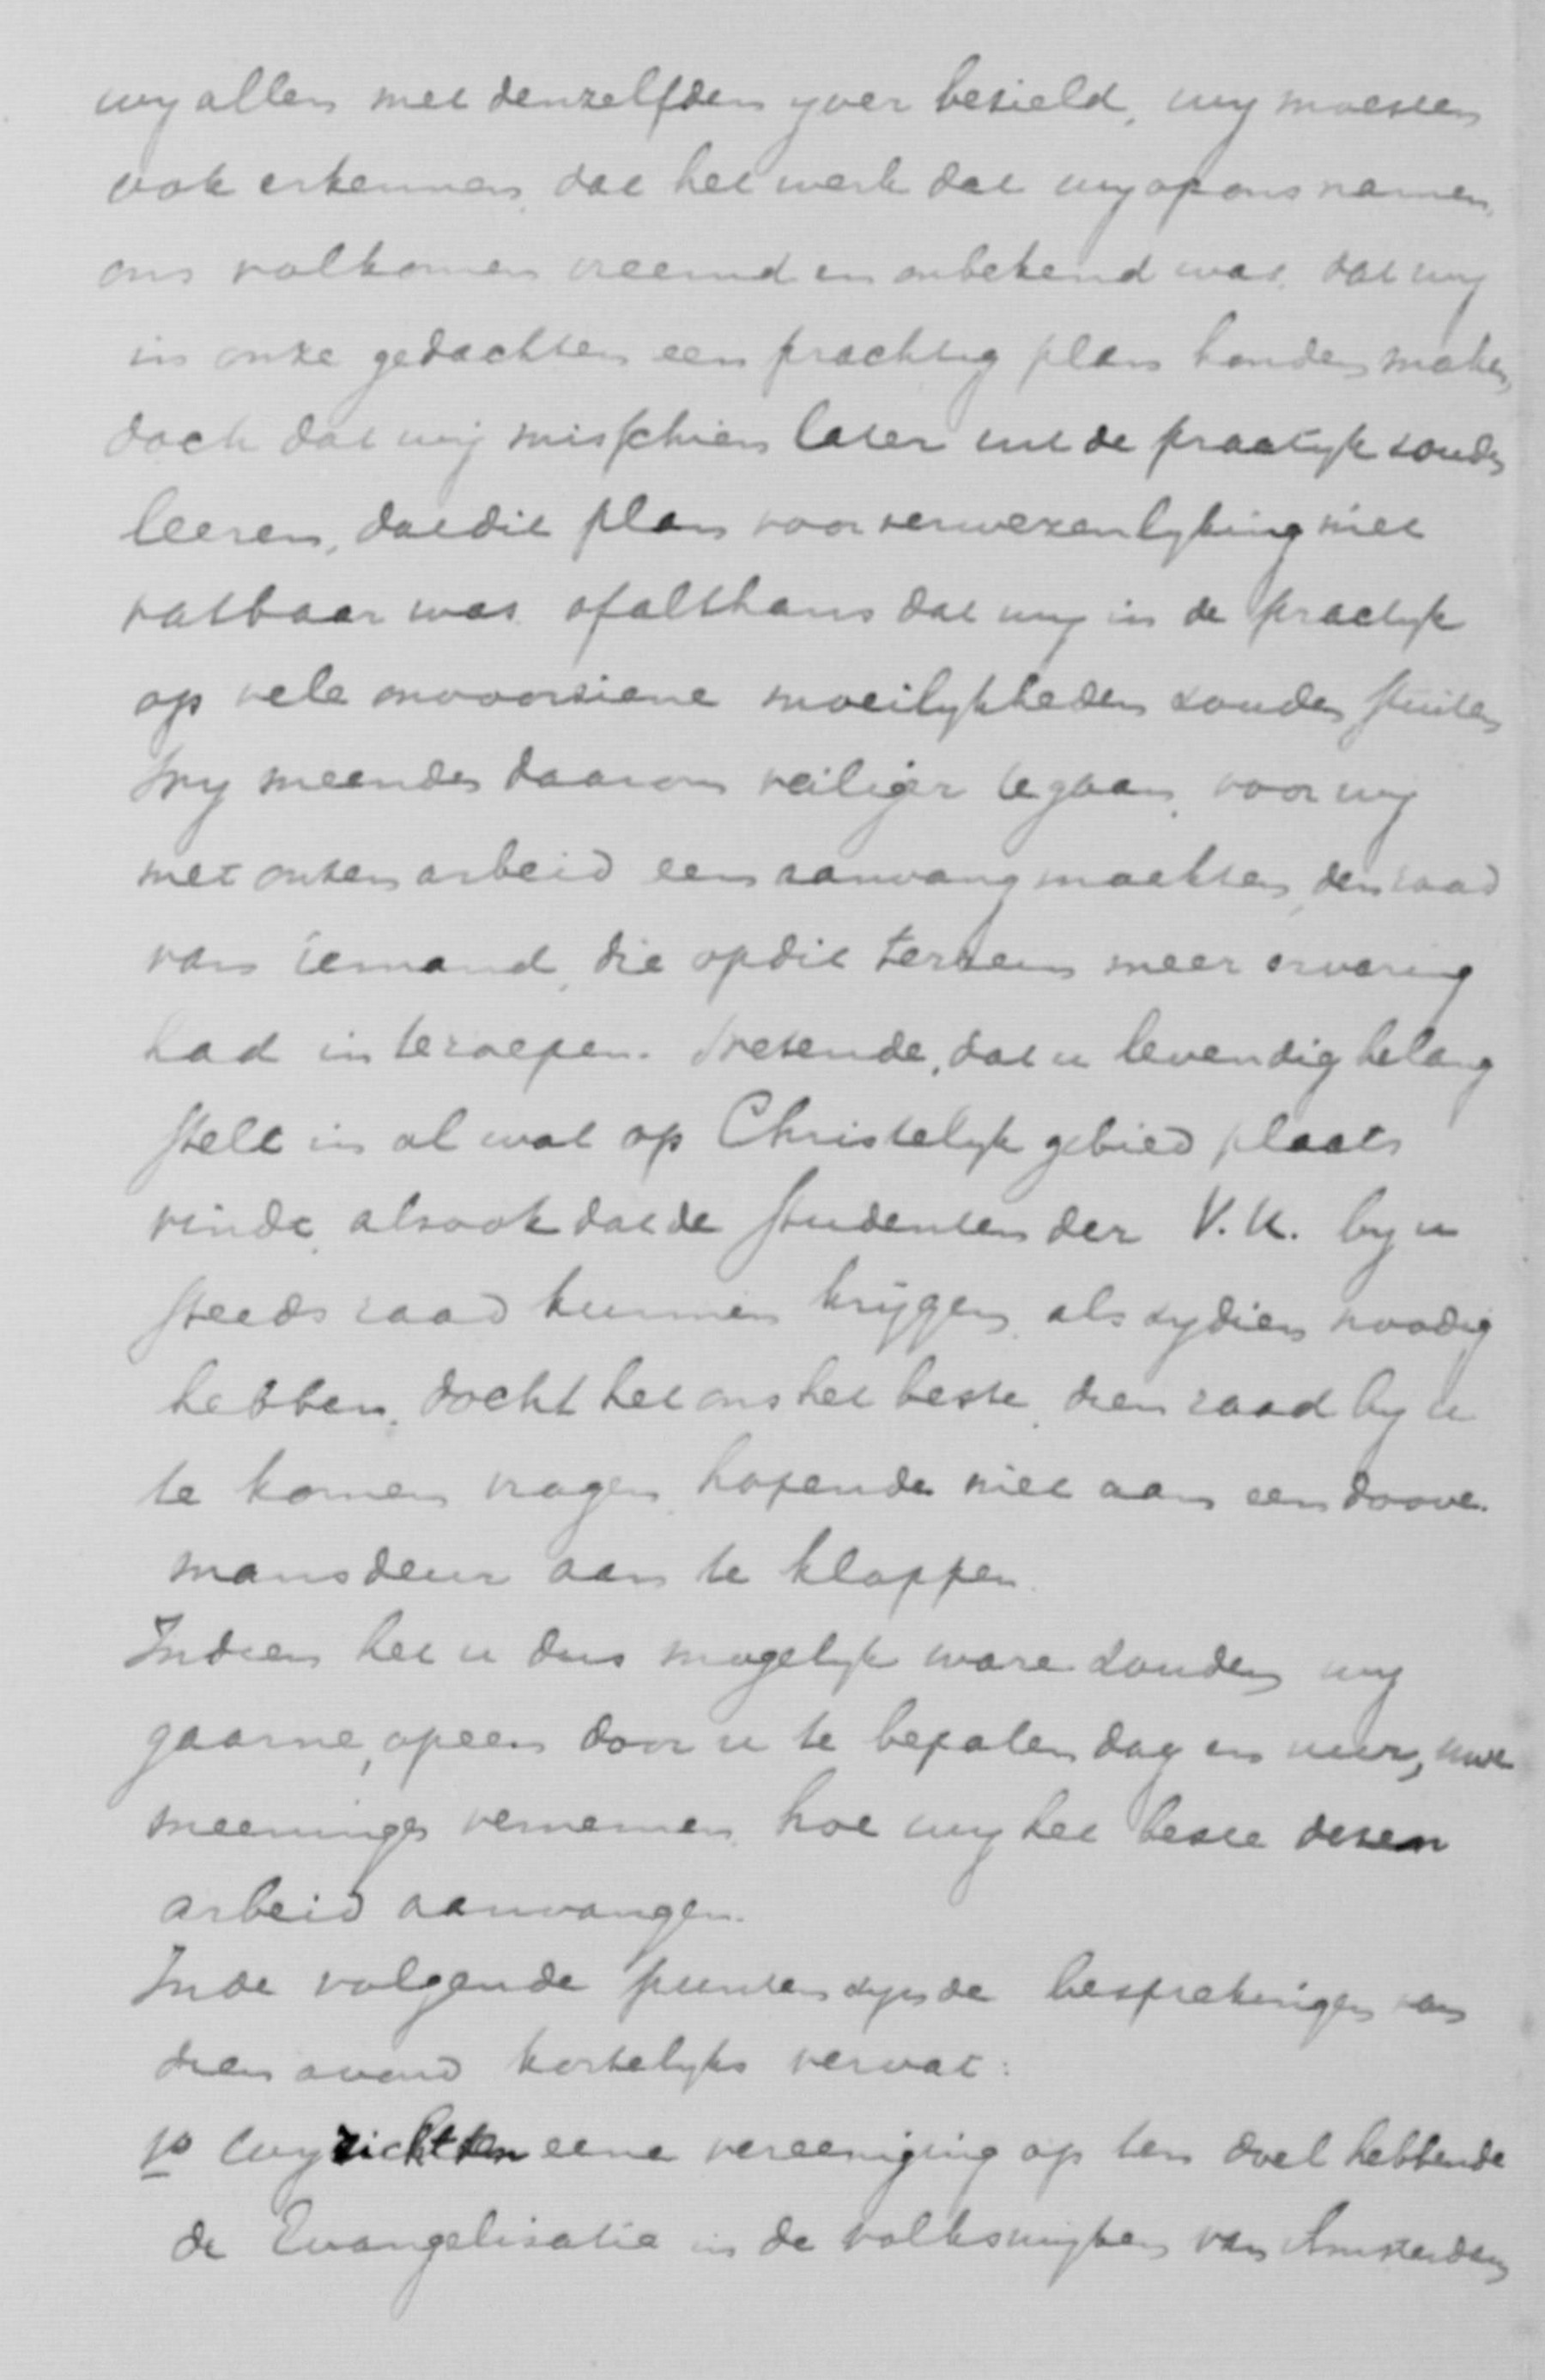 wy allen met denzelfden yver bezield, wy moesten
ook erkennen, dat het werk dat wy op ons namen,
ons volkomen vreemd en onbekend was, dat wy
in onze gedachten een prachtig plan konden maken,
doch dat wij misschien later uit de practyk zouden
leeren, dat dit plan voor verwezenlyking niet
vatbaar was of althans dat wy in de practyk
op vele onvoorziene moeilykheden zouden stuiten
Wy meenden daarom veiliger te gaan, voor wy
met onzen arbeid een aanvang maakten, den raad
van iemand, die op dit terrein meer ervaring
had in te roepen. Wetende, dat u levendig belang
stelt in al wat op Christelyk gebied plaats
vindt, alsook dat de studenten der V.U. by u
steeds raad kunnen krijgen, als zy dien noodig
hebben, docht het ons het beste, dien raad by u
te komen vragen, hopende niet aan een doove
mansdeur aan te kloppen.
Indien het u dus mogelyk ware zouden wy
gaarne, op een door u te bepalen dag en uur, uwe
meeningen vernemen, hoe wy het beste dezen
arbeid aanvangen.
In de volgende punten zyn de besprekingen van
dien avond kortelyks vervat:
1o Wy richtten eene vereeniging op ten doel hebbende
de Evangelisatie in de volkswyken van Amsterdam